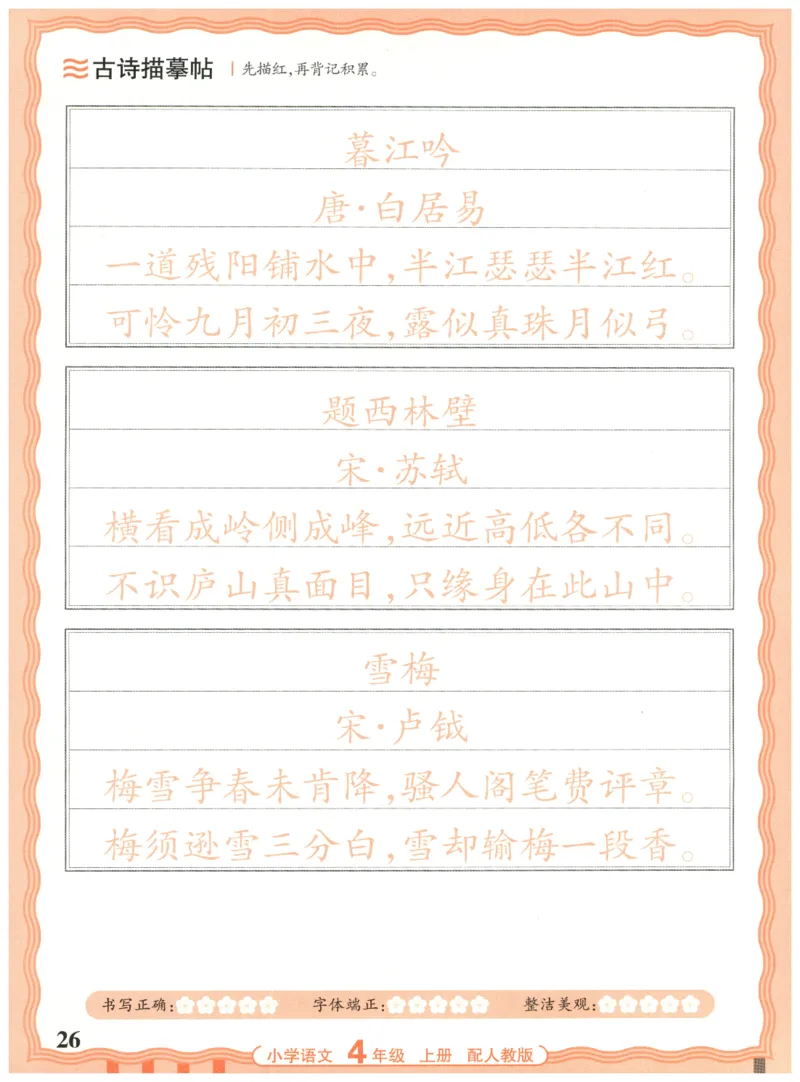 古诗描摹帖 | 先描红,再背记积累。
暮江吟
唐·白居易
一道残阳铺水中,半江瑟瑟半江红。
可怜九月初三夜,露似真珠月似弓。
题西林壁
宋·苏轼
横看成岭侧成峰,远近高低各不同。
不识庐山真面目,只缘身在此山中。
雪梅
宋·卢钺
梅雪争春未肯降,骚人阁笔费评章。
梅须逊雪三分白,雪却输梅一段香。
书写正确: 字体端正: 整洁美观:
26
小学语文 4年级 上册 配人教版